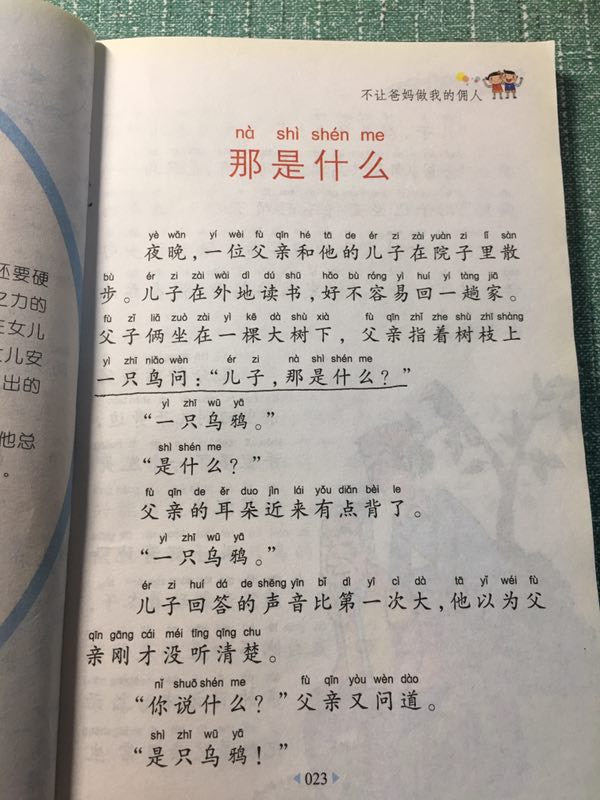 还要硬
之力的
女儿
儿安
出的
他总
。
不让爸妈做我的佣人
nà shì shén me
那是什么
yè wǎn yí wèi fù qīn hé tā de ér zi zài yuàn zi lǐ sàn
夜晚，一位父亲和他的儿子在院子里散
bù ér zi zài wài dì dú shū hǎo bù róng yì huí yí tàng jiā
步。儿子在外地读书，好不容易回一趟家。
fù zǐ liǎ zuò zài yì kē dà shù xià fù qīn zhǐ zhe shù zhī shàng
父子俩坐在一棵大树下，父亲指着树枝上
yì zhī niǎo wèn ér zi nà shì shén me
一只鸟问：“儿子，那是什么？”
yì zhī wū yā
“一只乌鸦。”
shì shén me
“是什么？”
fù qīn de ěr duo jìn lái yǒu diǎn bèi le
父亲的耳朵近来有点背了。
yì zhī wū yā
“一只乌鸦。”
ér zi huí dá de shēng yīn bǐ dì yī cì dà tā yǐ wéi fù
儿子回答的声音比第一次大，他以为父
qīn gāng cái méi tīng qīng chu
亲刚才没听清楚。
nǐ shuō shén me fù qīn yòu wèn dào
“你说什么？”父亲又问道。
shì zhī wū yā
“是只乌鸦！”
023